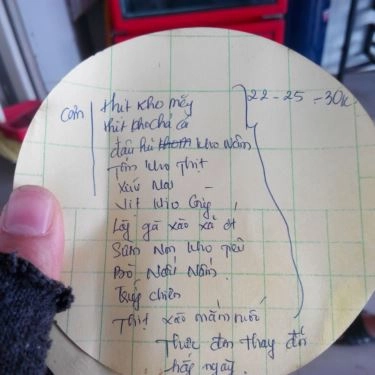 Cơm thịt kho mắm 22 - 25 - 30k
thịt kho chả cá
đậu hủ kho nấm
Tôm kho thịt
xíu mại
Vịt kho gừng
Lòng gà xào xả ớt
Sườn non kho tiêu
Bò nấu nấm
Trứng chiên
Thịt xào mắm ruốc
Thực đơn thay đổi
hằng ngày